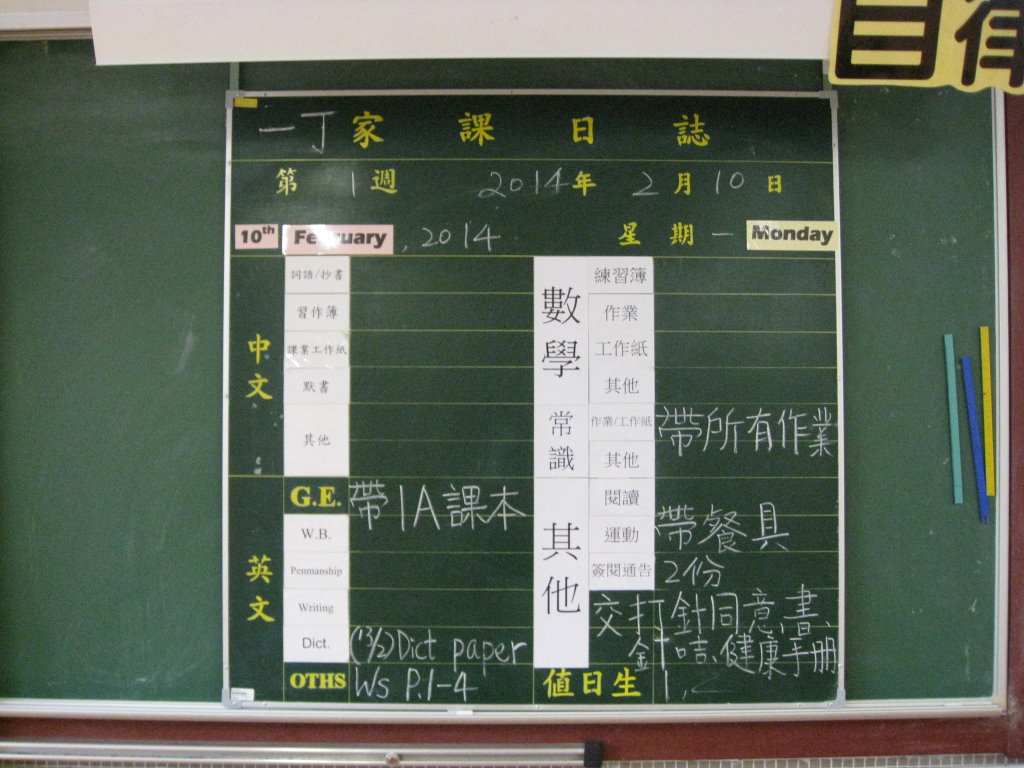 自律
一丁家課日誌
第 1 週 2014年 2月 10日
10th February, 2014 星期一 Monday
中文
詞語/抄書
習作簿
課業工作紙
默書
其他
英文
G.E. 帶1A課本
W.B.
Penmanship
Writing
Dict. (13/2)Dict paper
OTHS WS P.1-4
數學
練習簿
作業
工作紙
其他
常識
作業/工作紙 帶所有作業
其他
其他
閱讀
運動 帶餐具
簽閱通告 2份
交打針同意書、
針咭、健康手冊
值日生 1,2